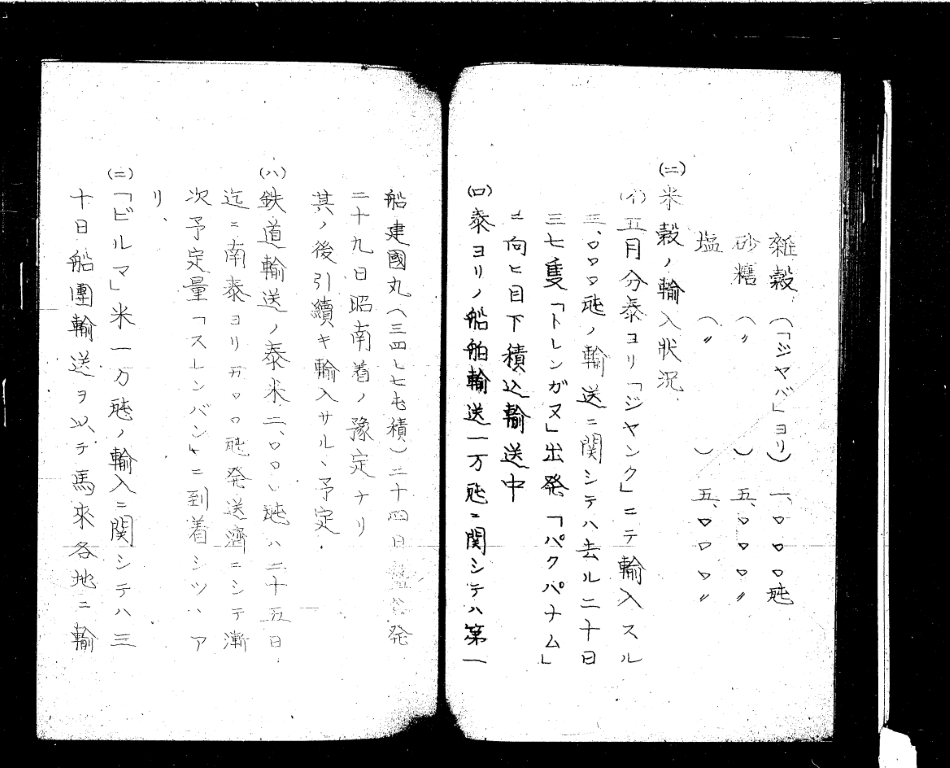 雑穀(「ジヤバ」ヨリ) 一、〇〇〇瓲
砂糖(〃) 五、〇〇〇〃
塩(〃) 五、〇〇〇〃
(二)米穀ノ輸入狀況.
(イ)五月分泰ヨリ「ジヤンク」ニテ輸入スル
三、〇〇〇瓲ノ輸送ニ関シテハ去ル二十日
三七隻「トレンガヌ」出発「パクパナム」
ニ向ヒ目下積込輸送中
(ロ)泰ヨリノ船舶輸送一万瓲ニ関シテハ第一
船建國丸(三四七七屯積)二十四日盤谷発
二十九日昭南着ノ豫定ナリ
其ノ後引續キ輸入サルヽ予定.
(ハ)鉄道輸送ノ泰米二、〇〇〇瓲ハ二十五日
迄ニ南泰ヨリ五〇〇瓲発送濟ニシテ漸
次予定量「スレンバン」ニ到着シツヽア
リ、
(ニ)「ビルマ」米一万瓲ノ輸入ニ関シテハ三
十日船團輸送ヲ以テ馬來各地ニ輸